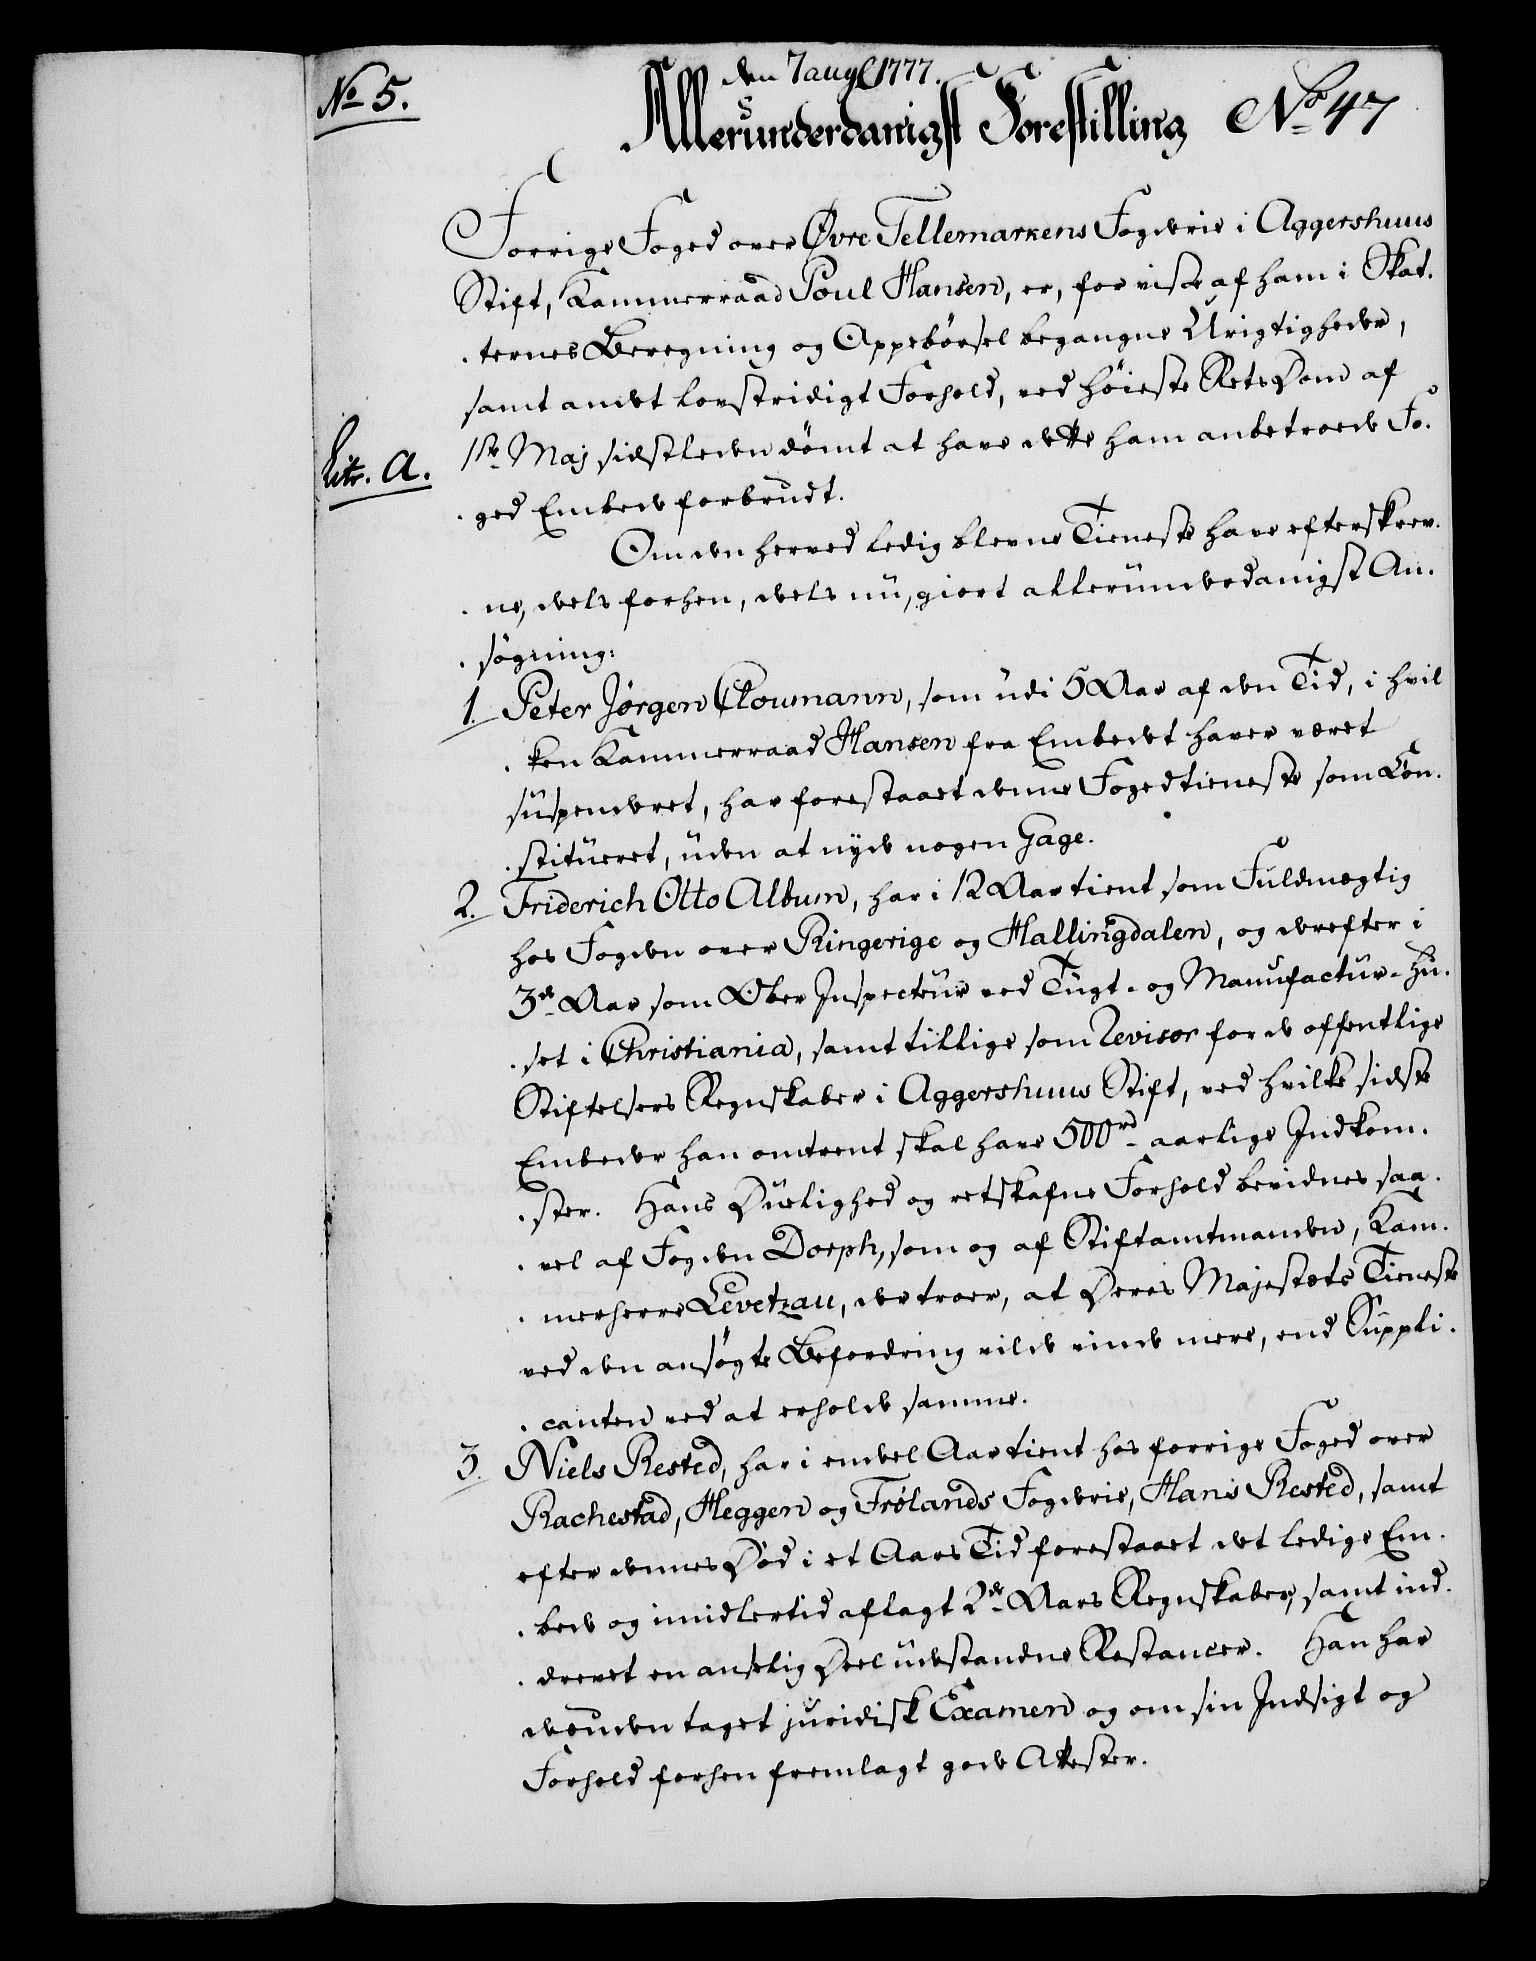 No 5.
den 7 augl 1777.
Allerunderdanigst Forestilling No 47
Forrige Foged over Øvre Tellemarkens Fogderie i Aggershuus
Stift, Kammerraad Poul Hansen, er, for visse af ham i Skat-
-ternes Beregning og Oppebørsel begangne Urigtigheder,
samt andet lovstridigt Forhold, ved høieste Rets Dom af
Litr. A.
1ste Maj sidstleden dømt at have dette ham anbetroede Fo-
-ged Embede forbrudt.
Om den herved ledig blevne Tieneste have efterskrev-
-ne, deels forhen, deels nu, giort allerunderdanigst An-
-søgning:
1. Peter Jørgen Cloumann, som udi 5 Aar af den Tid, i hvil
-ken Kammerraad Hansen fra Embedet haver været
suspenderet, har forestaaet denne Fogedtieneste som Con-
-stitueret, uden at nyde nogen Gage.
2. Friderich Otto Album, har i 12 Aar tient som Fuldmægtig
hos Fogden over Ringerige og Hallingdalen, og derefter i
3de Aar som Ober Inspecteur ved Tugt- og Manufactur-Hu-
-set i Christiania, samt tillige som Revisor for de offentlige
Stiftelsers Regnskaber i Aggershuus Stift, ved hvilke sidste
Embeder han omtrent skal have 500rd aarlige Indkom-
-ster. Hans Duelighed og retskafne Forhold bevidnes saa-
-vel af Fogden Dorph, som og af Stiftamtmanden, Kam-
-merherre Levetzau, der troer, at Deres Majestæts Tieneste
ved den ansøgte Befordring vilde vinde mere, end Suppli-
-canten ved at erholde samme.
3. Niels Rested, har i endeel Aar tient hos forrige Foged over
Rachestad, Heggen og Frølands Fogderie, Hans Rested, samt
efter dennes Død i et Aars Tid forestaaet det ledige Em-
-bede og imidlertid aflagt 2de Aars Regnskaber, samt ind-
-drevet en anselig Deel udestaaende Restancer. Han har
desuden taget juridisk Examen og om sin Indsigt og
Forhold forhen fremlagt gode Attester.